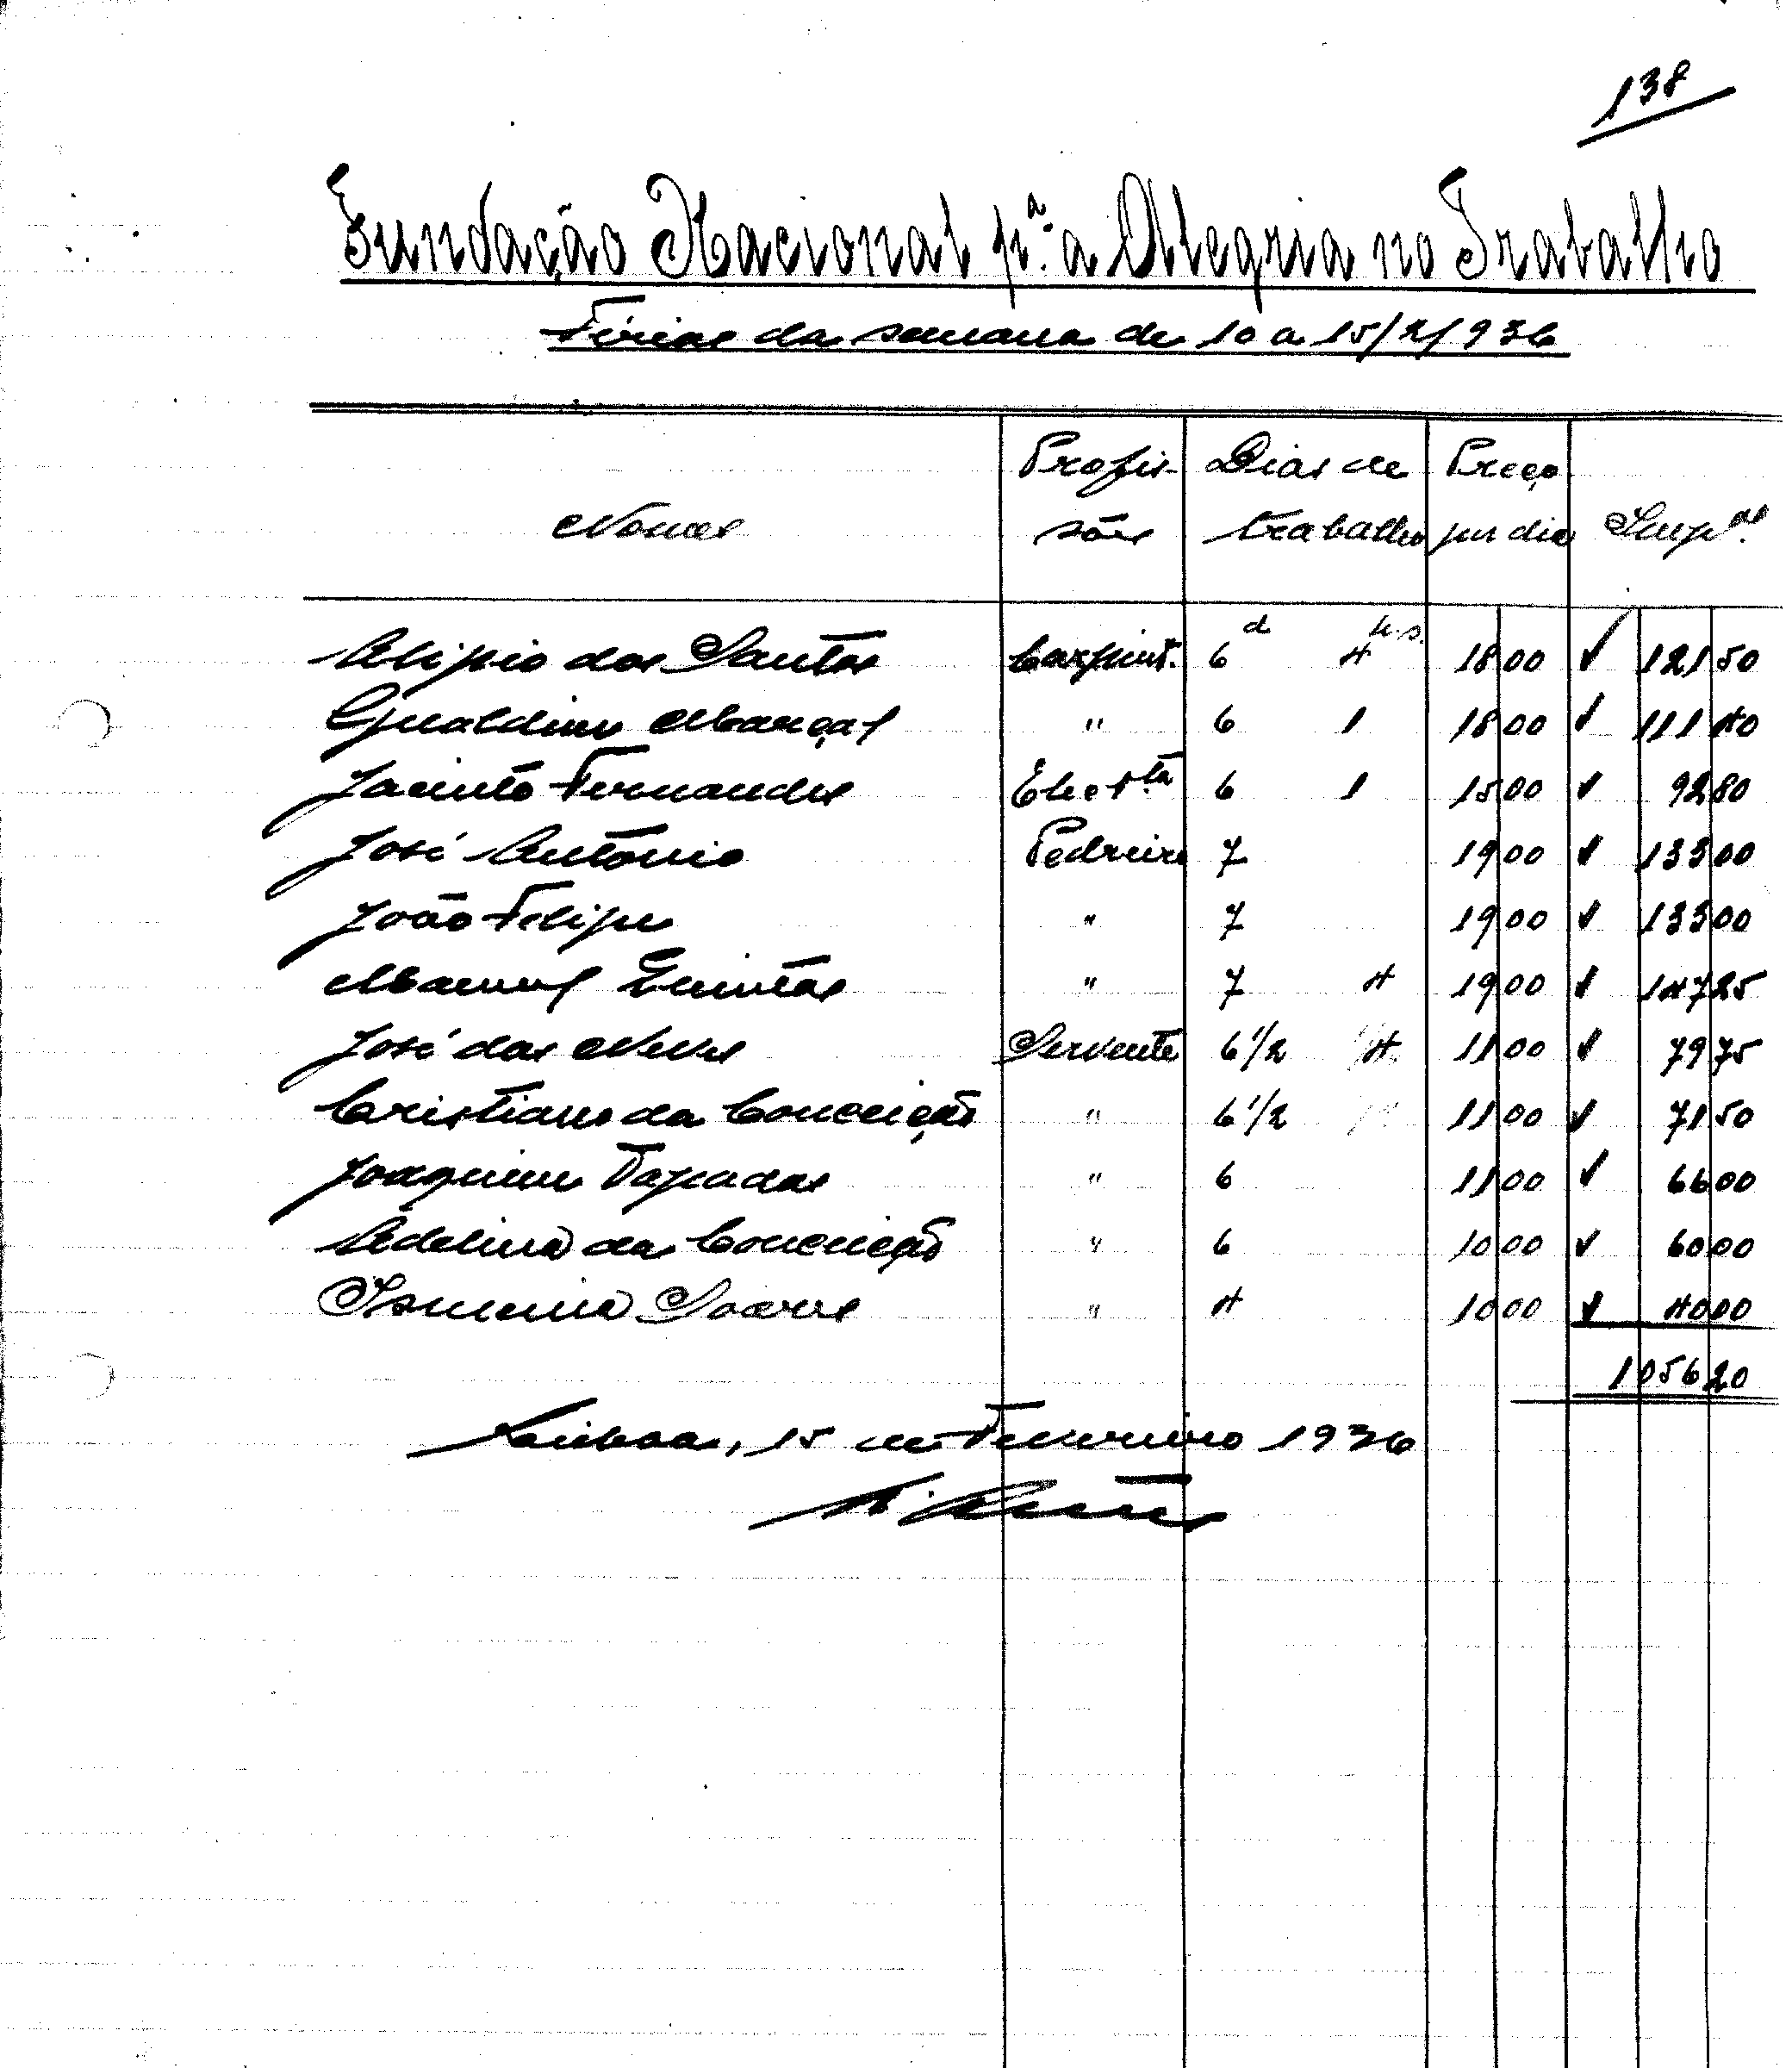 138
Fundação Nacional pª. a Alegria no Trabalho
Férias da semana de 10 a 15/2/936
Nomes Profissões Dias de trabalho Preço por dia Impas.
d h.s.
Alipio dos Santos Carpint. 6 4 18 00 ✓ 121 50
Gualdino Marçal " 6 1 18 00 ✓ 111 40
Jacinto Fernandes Elect.ta 6 1 15 00 ✓ 92 80
José António Pedreiro 7 19 00 ✓ 133 00
João Felipe " 7 19 00 ✓ 133 00
Manuel " 7 4 19 00 ✓ 147 25
José das Neves Servente 6 1/2 4 11 00 ✓ 79 75
Cristiano da Conceição " 6 1/2 11 00 ✓ 71 50
Joaquim Tapadas " 6 11 00 ✓ 66 00
Adelina da Conceição " 6 10 00 ✓ 60 00
Ismenia Soares " 4 10 00 ✓ 40 00
1 056 20
Lisboa, 15 de Fevereiro 1936